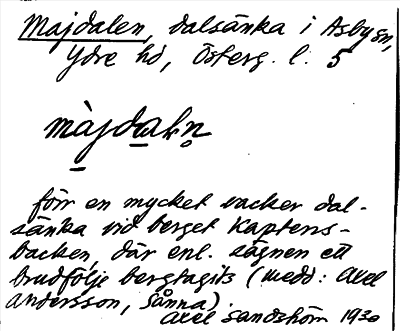 Majdalen, dalsänka i Asbygn,
Ydre hd, Österg. l. 5
màjdaln
förr en mycket vacker dal-
sänka vid berget Kaptens-
backen, där enl. sägnen ett
brudfölje bergtagits (medd: Axel
Andersson, Sånna).
Axel Sandström 1930